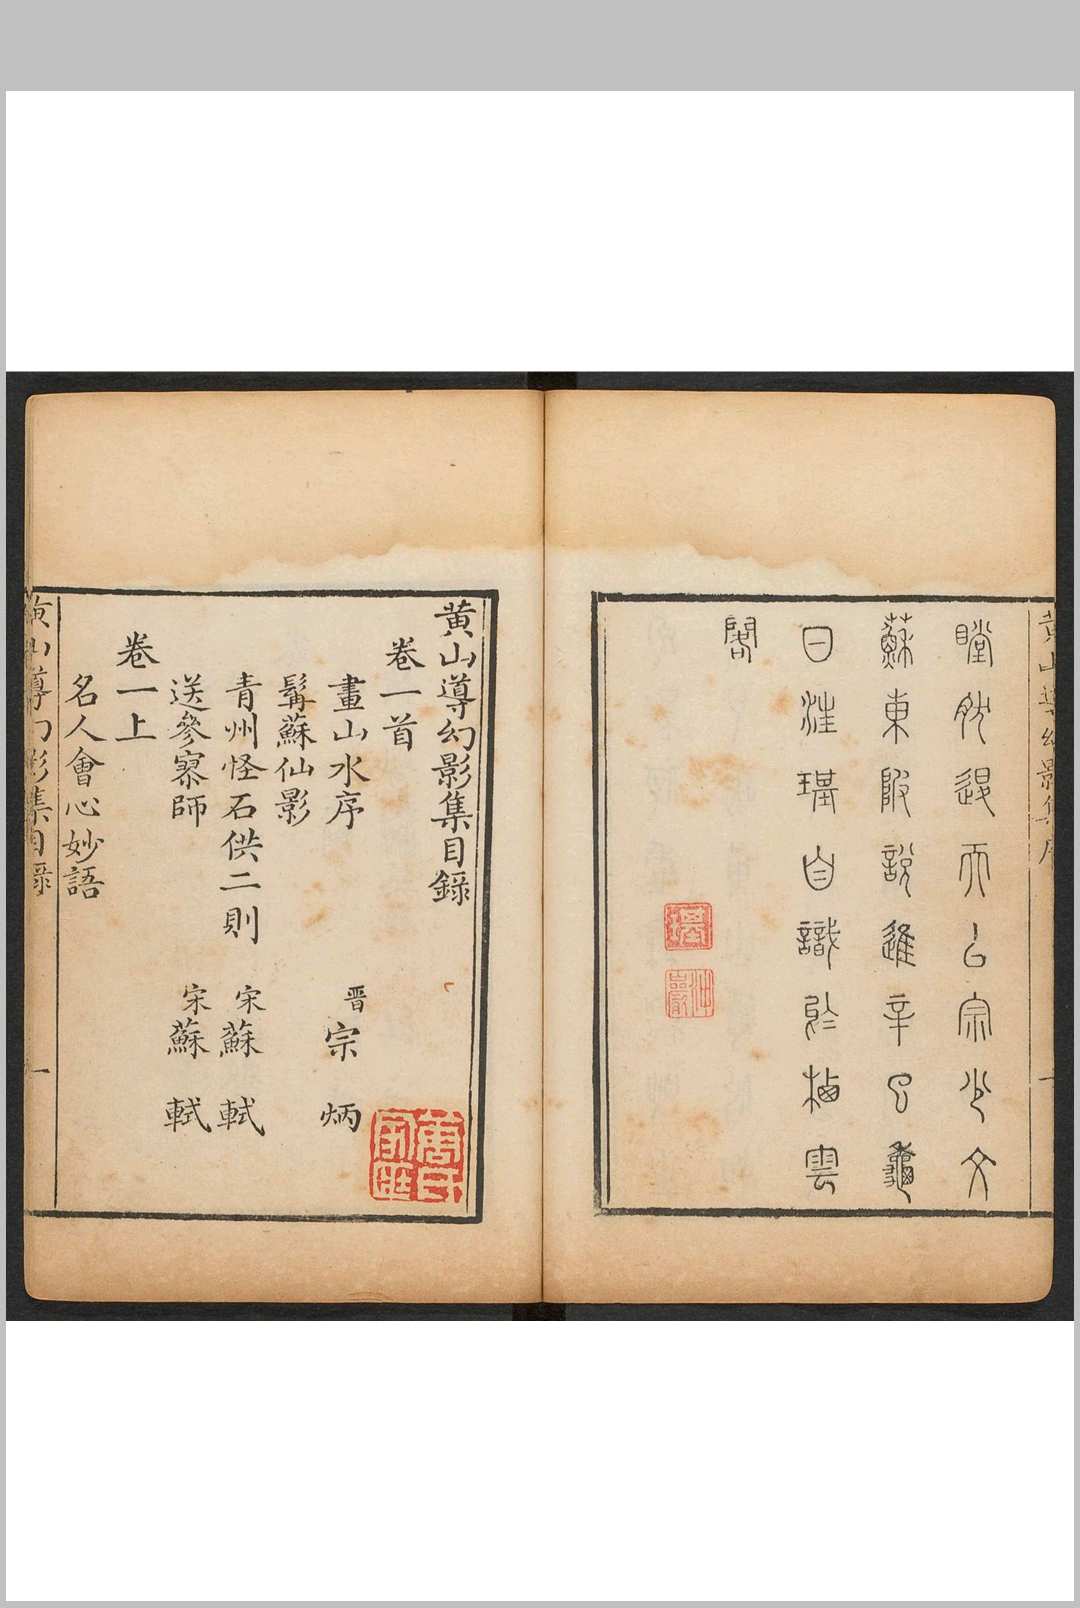 黄山導幻影集序 一
瞠然退而以宗少文
蘇東陂説進辛巳龝
日汪璂自識於梅雲
閣
黄山導幻影集目錄
卷一首
畫山水序 晋宗炳
髯蘇仙影
青州怪石供二則 宋蘇軾
送參寥師 宋蘇軾
卷一上
名人會心妙語
黄山導幻影集目錄 一